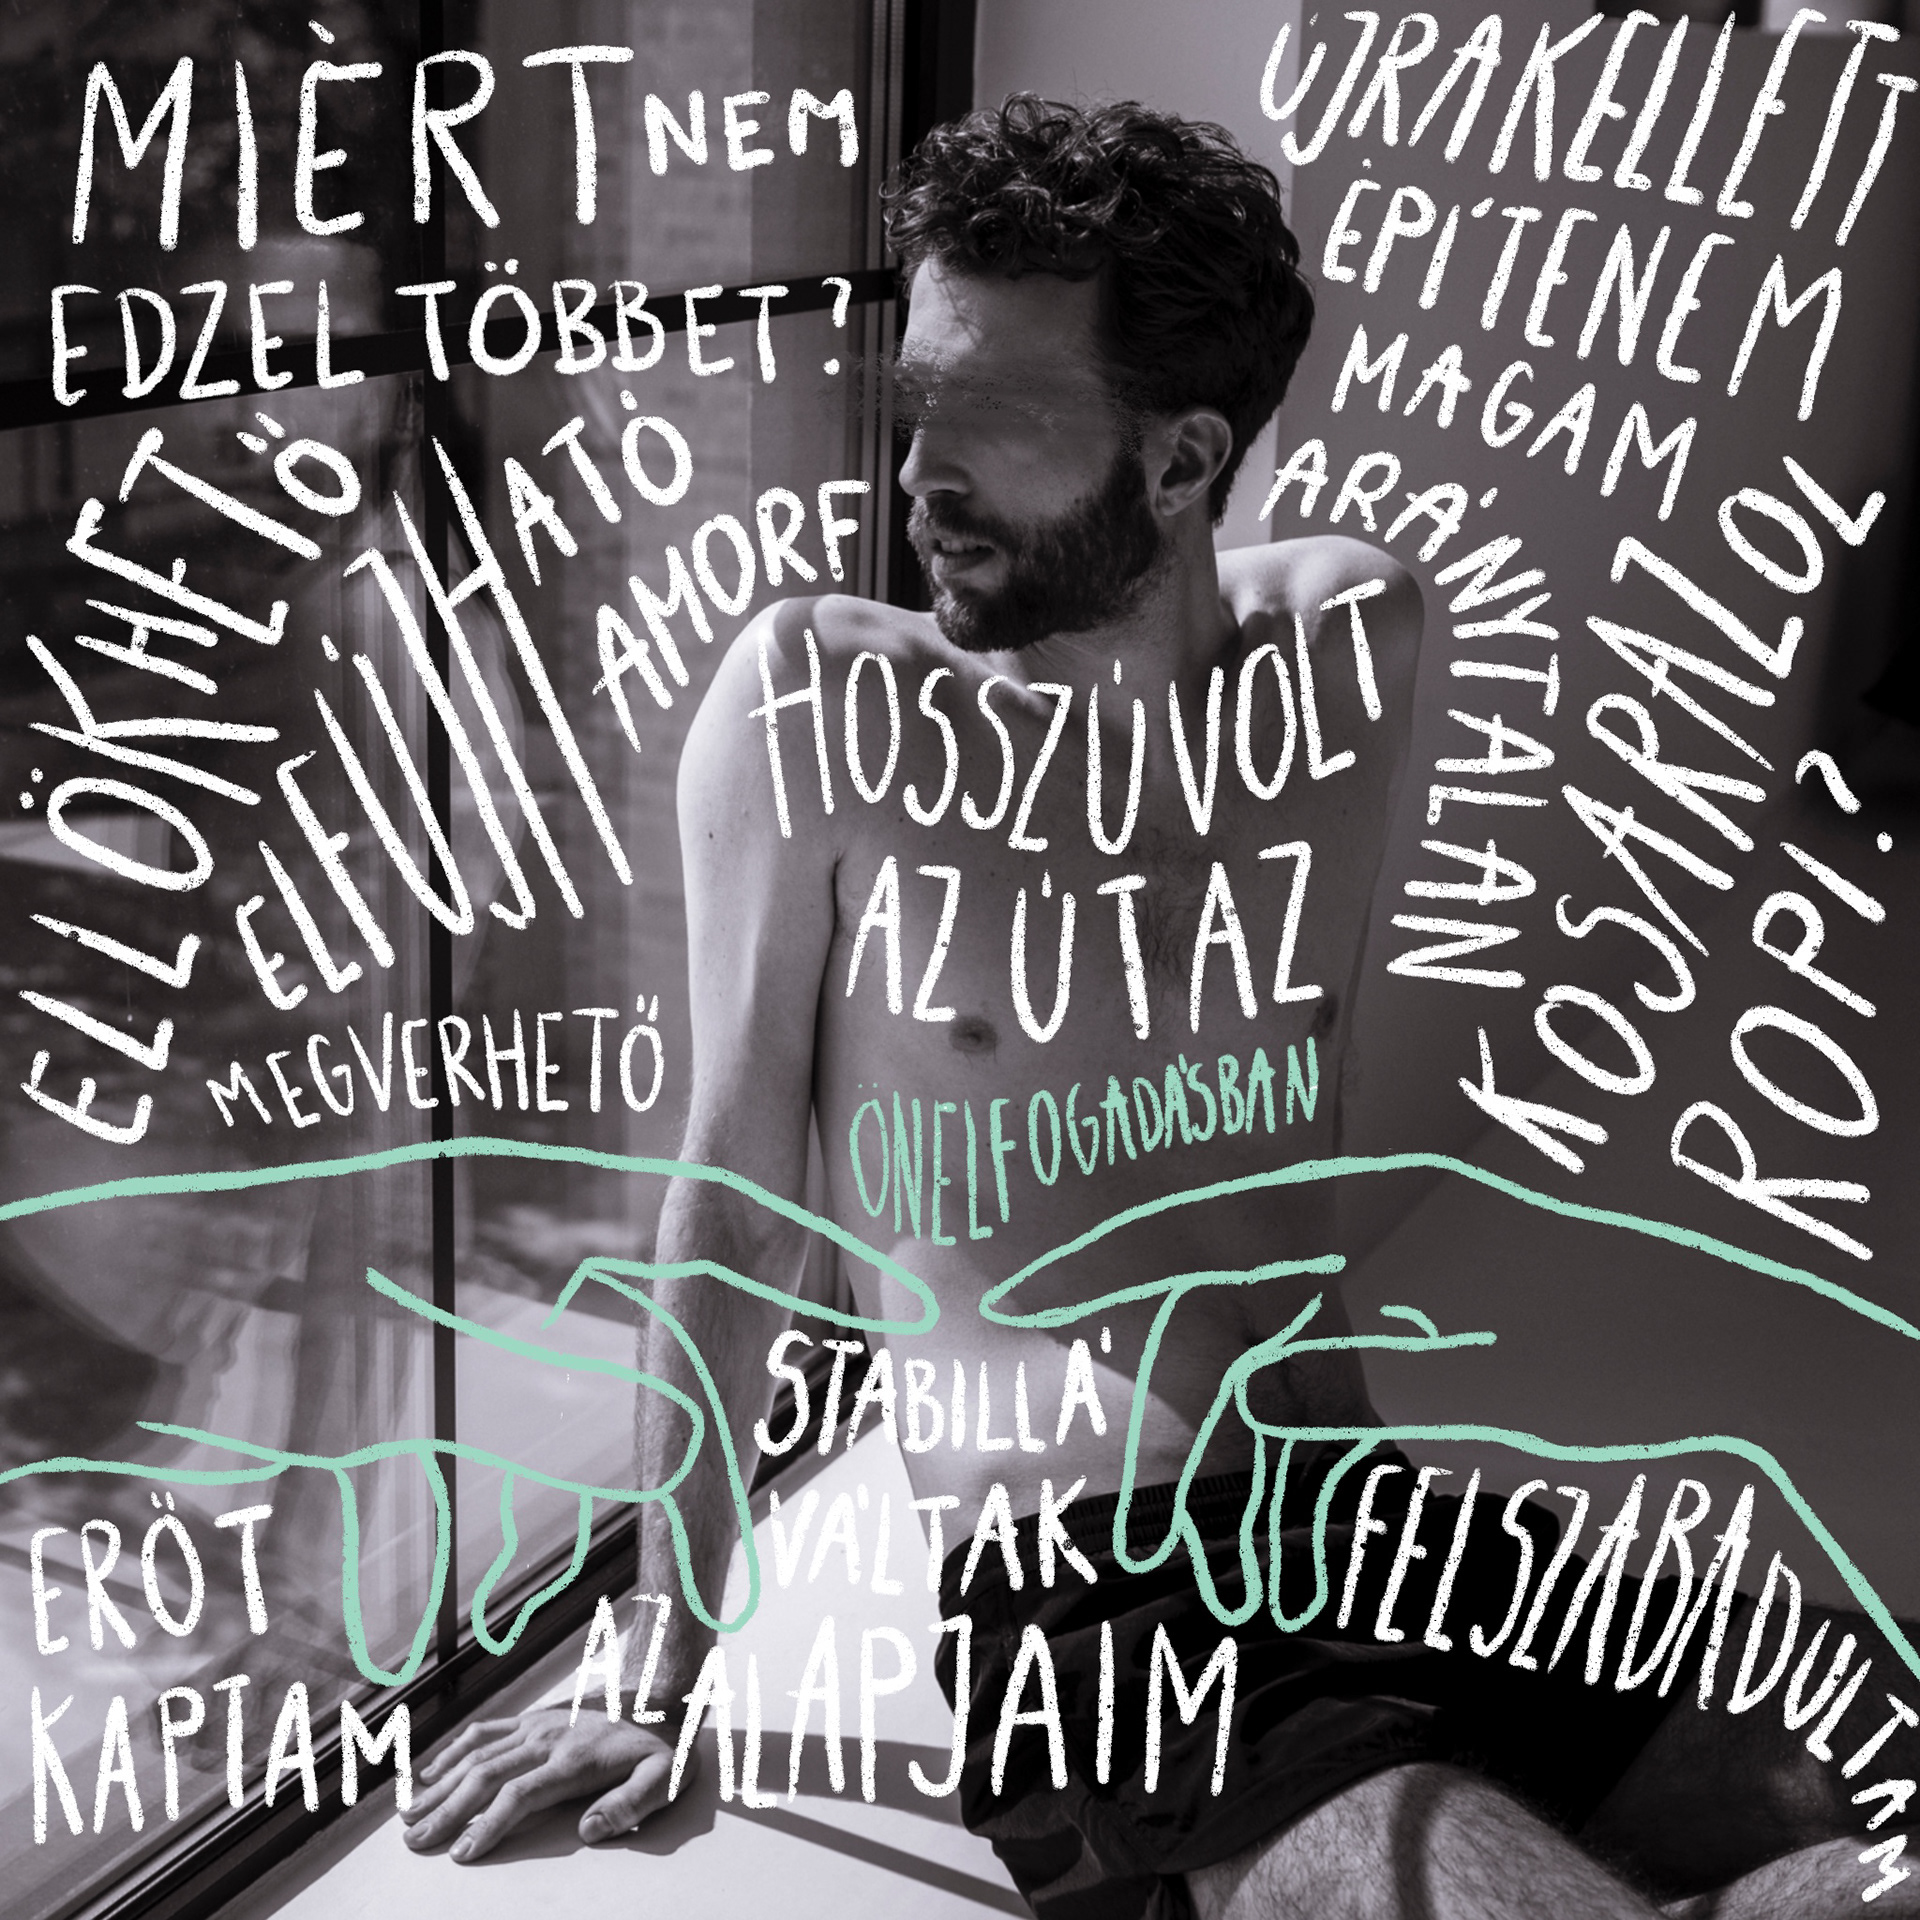 MIÈRT NEM
EDZEL TÖBBET?
ELLÖKHETŐ
ELFÚJHATÓ
AMORF
MEGVERHETŐ
ÚJRA KELLETT
ÉPÍTENEM
MAGAM
ARÁNYTALAN
KOSARAZOL
ROPI?
HOSSZÚ VOLT
AZ ÚT AZ
ÖNELFOGADÁSBAN
STABILLÁ
VÁLTAK
AZ ALAPJAIM
ERŐT
KAPTAM
FELSZABADULTAM